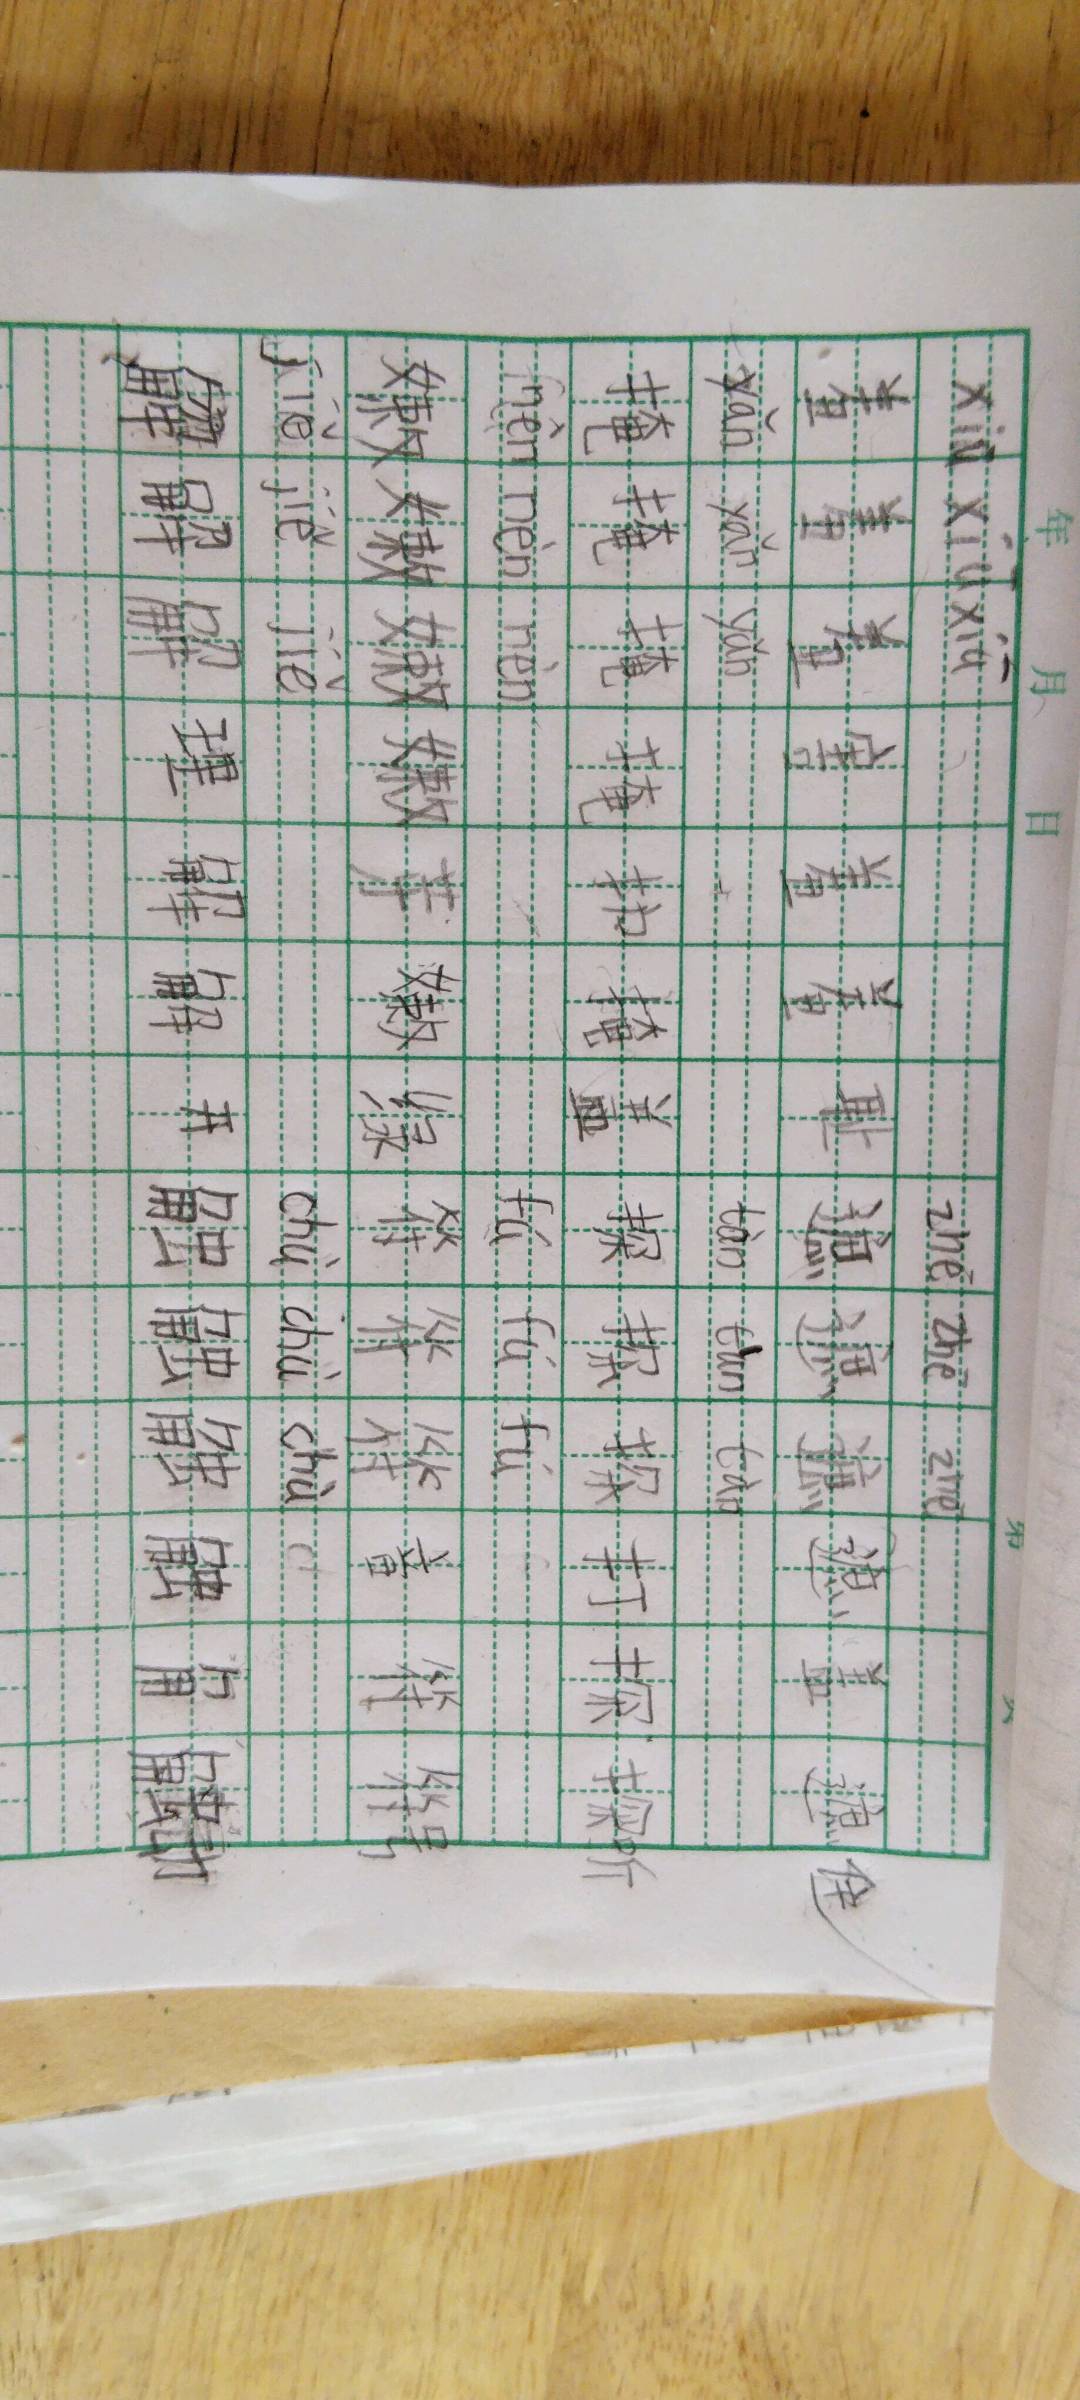 年 月 日
xiū xiū xiū zhē zhē zhē
羞 羞 羞 害 羞 羞 耻 遮 遮 遮 遮 盖 遮 住
yǎn yǎn yǎn tàn tàn tàn
掩 掩 掩 掩 护 掩 盖 探 探 探 打 探 探 听
nèn nèn nèn fú fú fú
嫩 嫩 嫩 嫩 芽 嫩 绿 符 符 符 音 符 符 号
jiě jiě jiě chù chù chù
解 解 解 理 解 解 开 触 触 触 触 角 触 动